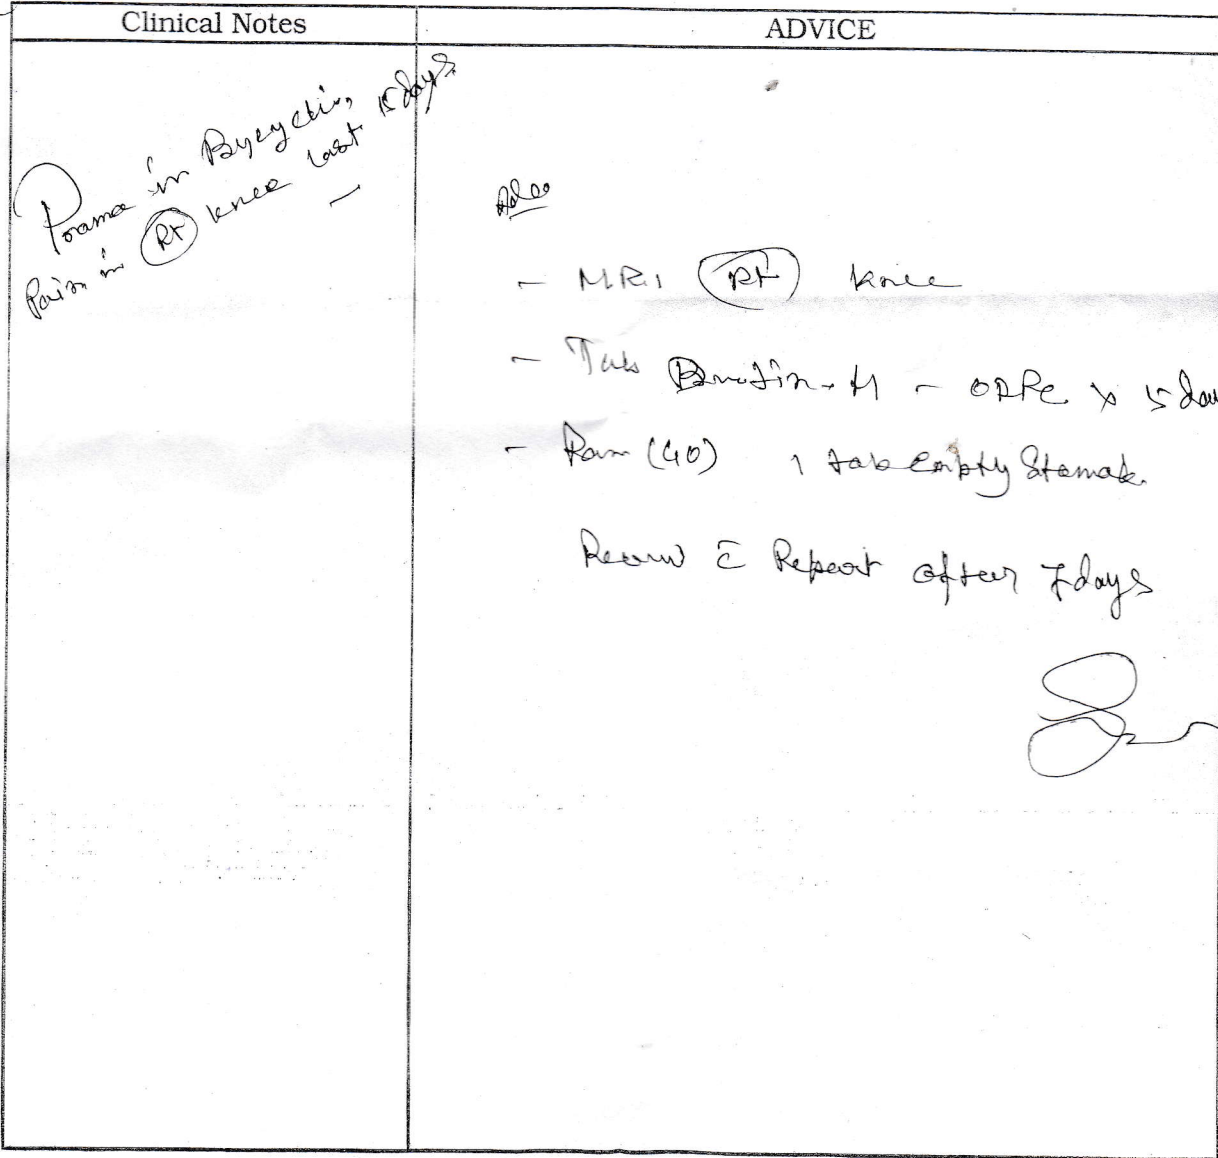 Clinical Notes
ADVICE
Trama in Bycyclin,
Pain in Rt knee last 15 days
Adv
- MRI Rt knee
- Tab - ODPC x 15 day
- Ran (40) 1 tab empty Stomak
Review c̄ Report after 7 days